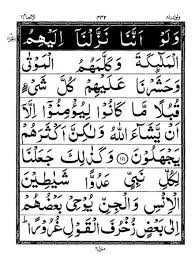 وَلَوْ اَنَّنَا نَزَّلْنَاۤ اِلَيْهِمُ
الْمَلٰٓئِكَةَ وَكَلَّمَهُمُ الْمَوْتٰى
وَحَشَرْنَا عَلَيْهِمْ كُلَّ شَيْءٍ
قُبُلًا مَّا كَانُوْا لِيُؤْمِنُوْۤا اِلَّاۤ
اَنْ يَّشَآءَ اللّٰهُ وَلٰكِنَّ اَكْثَرَهُمْ
يَجْهَلُوْنَ ﴿١١١﴾ وَكَذٰلِكَ جَعَلْنَا
لِكُلِّ نَبِيٍّ عَدُوًّا شَيٰطِيْنَ
الْاِنْسِ وَالْجِنِّ يُوْحِيْ بَعْضُهُمْ
اِلٰى بَعْضٍ زُخْرُفَ الْقَوْلِ غُرُوْرًا ؕ